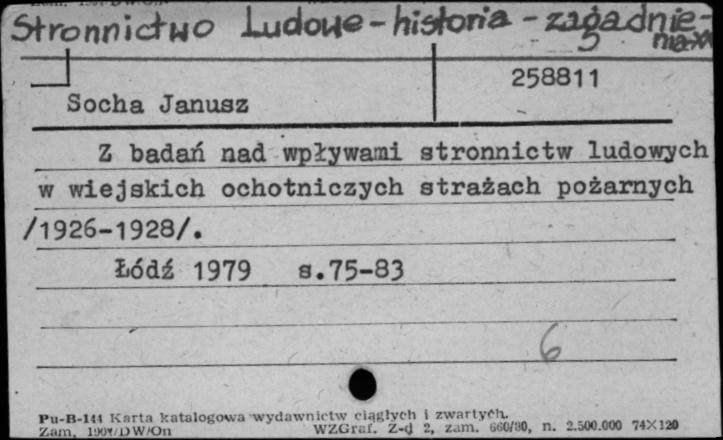 Stronnictwo Ludowe - historia - zagadnie-
nia
258811
Socha Janusz
Z badań nad wpływami stronnictw ludowych
w wiejskich ochotniczych strażach pożarnych
/1926-1928/.
Łódź 1979 s.75-83
6
Pu-B-144 Karta katalogowa wydawnictw ciągłych i zwartych.
Zam. WZGraf. Z-d 2, zam. 660/80, n. 2.500.000 74X120